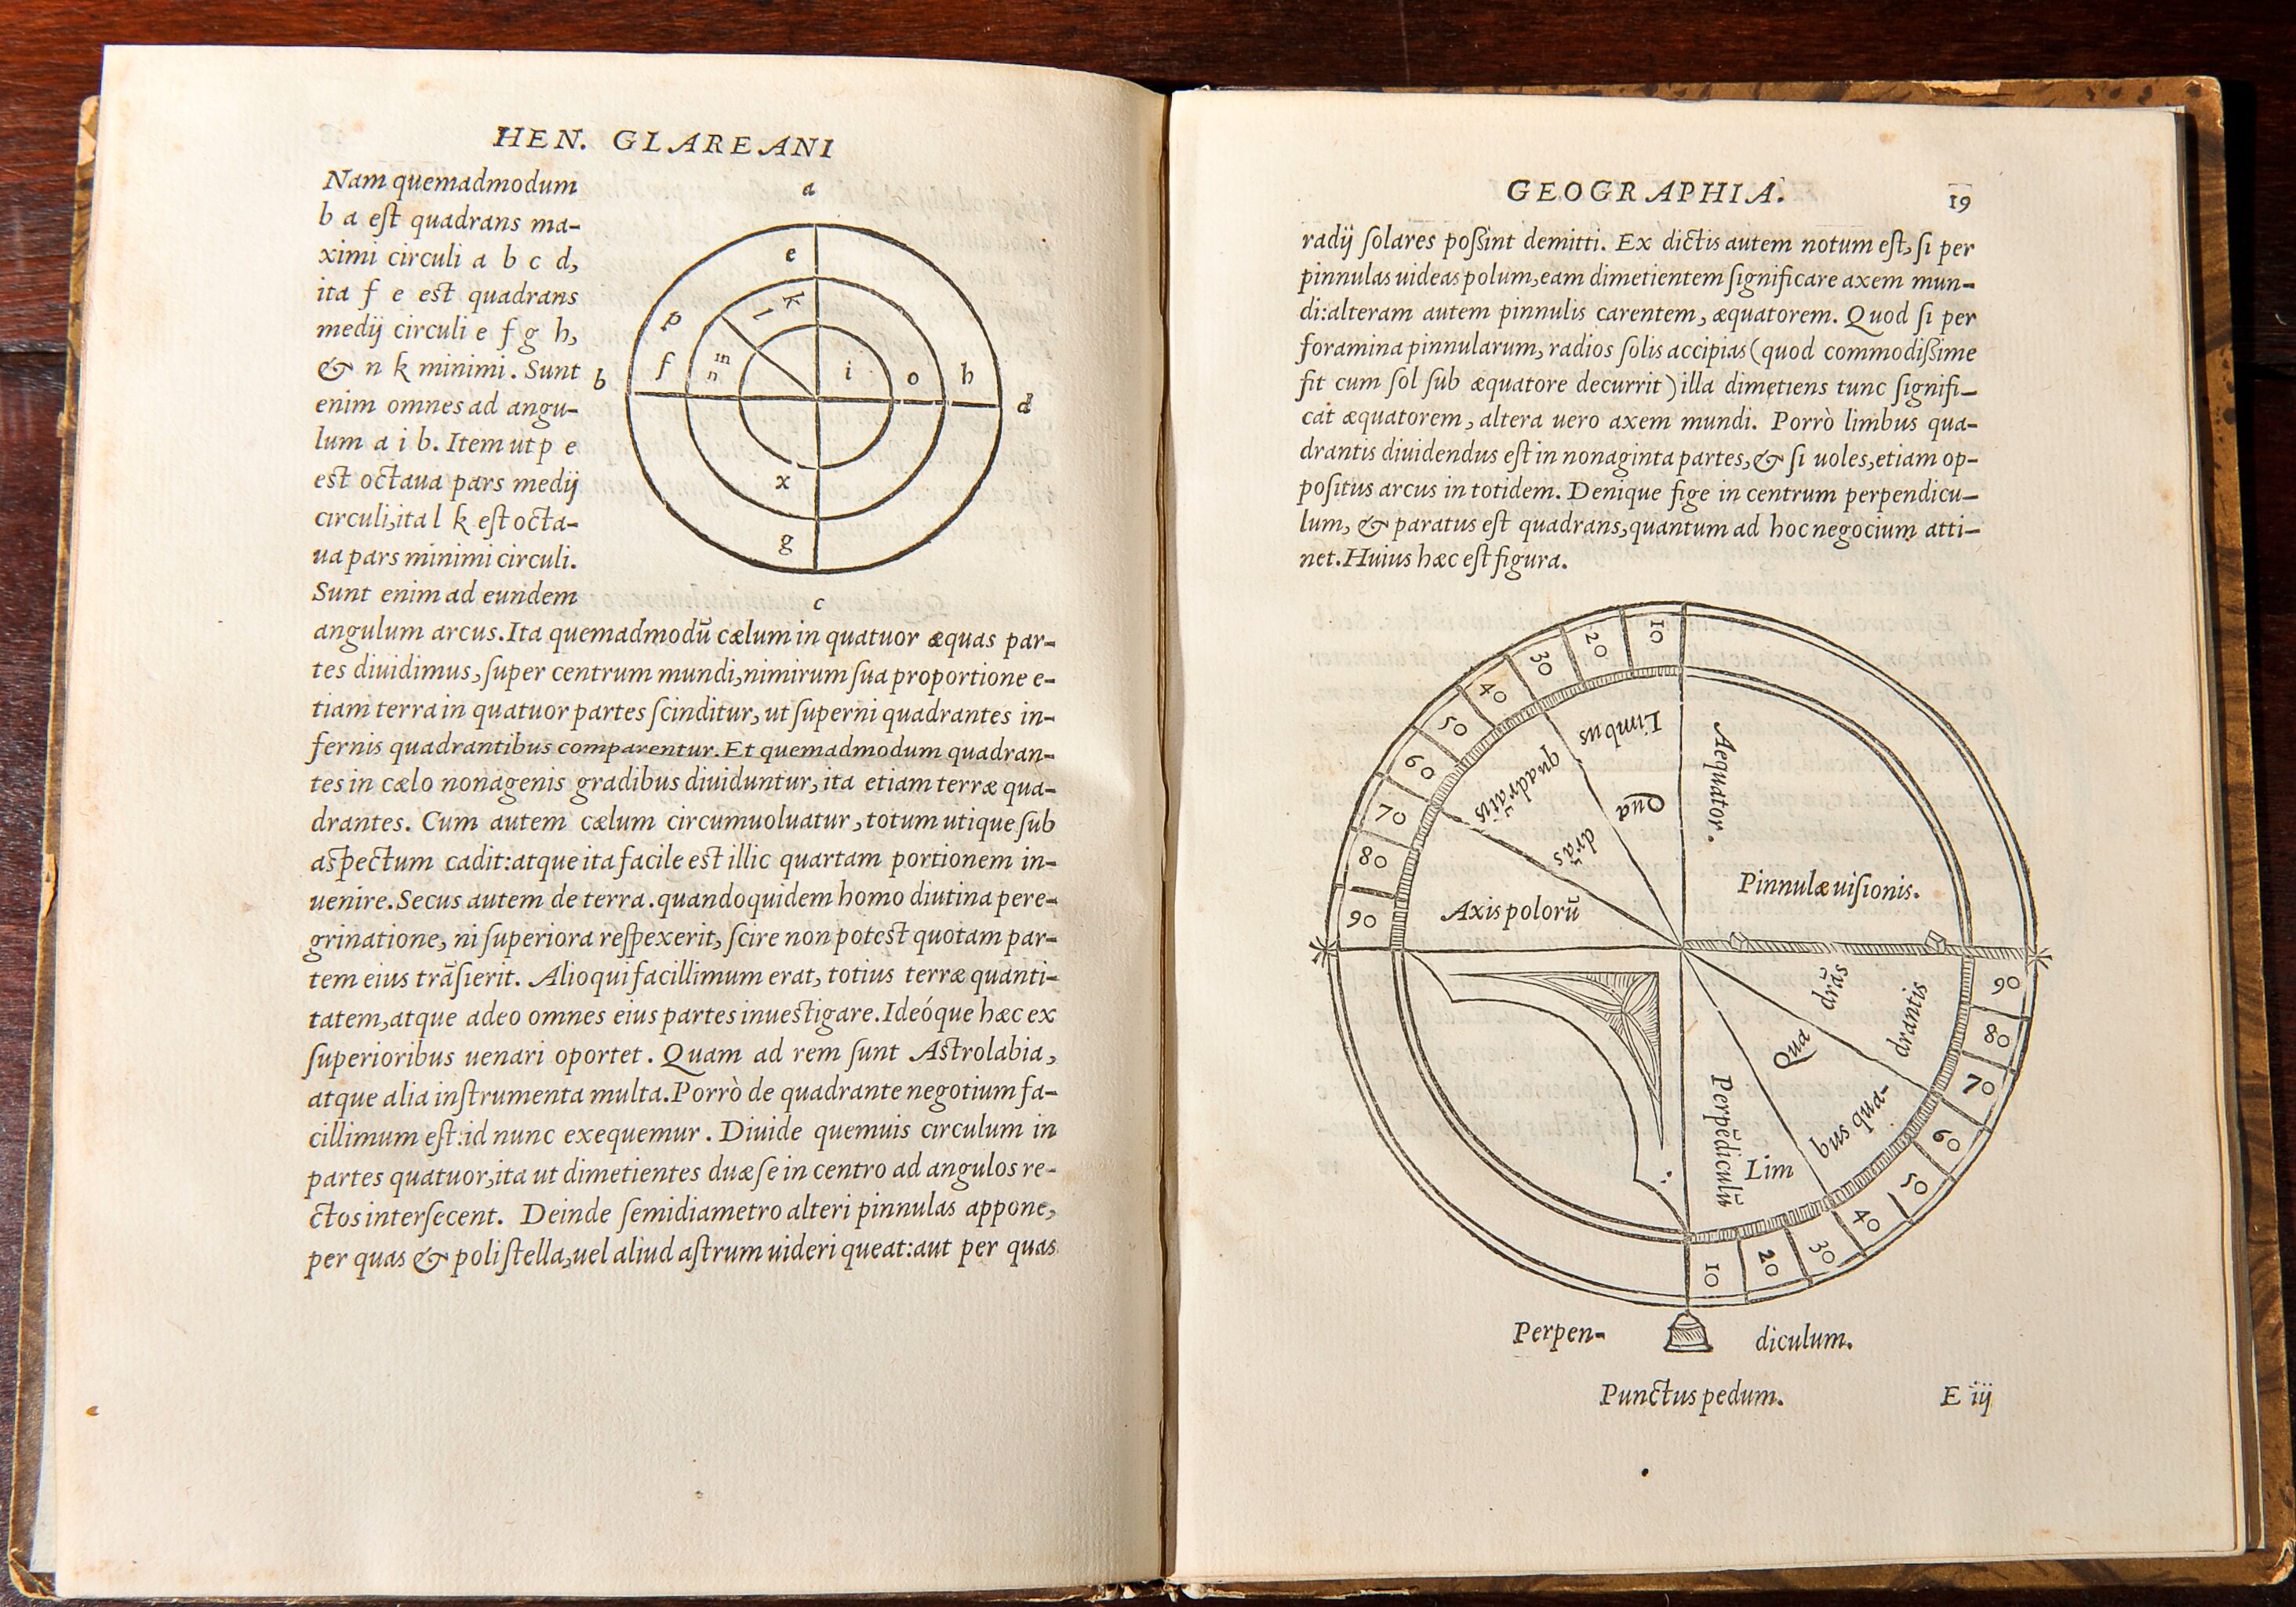 HEN. GLAREANI
Nam quemadmodum
b a eſt quadrans ma-
ximi circuli a b c d,
ita f e est quadrans
medij circuli e f g h,
& n k minimi. Sunt
enim omnes ad angu-
lum a i b. Item ut p e
est octaua pars medij
circuli, ita l k eſt octa-
ua pars minimi circuli.
Sunt enim ad eundem
a
e
k
l
p
f
m
n
i
o
h
b
d
x
g
c
angulum arcus. Ita quemadmodū cælum in quatuor æquas par-
tes diuidimus, ſuper centrum mundi, nimirum ſua proportione e-
tiam terra in quatuor partes ſcinditur, ut ſuperni quadrantes in-
fernis quadrantibus comparentur. Et quemadmodum quadran-
tes in cælo nonagenis gradibus diuiduntur, ita etiam terræ qua-
drantes. Cum autem cælum circumuoluatur, totum utique ſub
aspectum cadit: atque ita facile est illic quartam portionem in-
uenire. Secus autem de terra. quandoquidem homo diutina pere-
grinatione, ni ſuperiora reſpexerit, ſcire non potest quotam par-
tem eius trāſierit. Alioqui facillimum erat, totius terræ quanti-
tatem, atque adeo omnes eius partes inuestigare. Ideóque hæc ex
ſuperioribus uenari oportet. Quam ad rem ſunt Astrolabia,
atque alia inſtrumenta multa. Porrò de quadrante negotium fa-
cillimum eſt: id nunc exequemur. Diuide quemuis circulum in
partes quatuor, ita ut dimetientes duæ ſe in centro ad angulos re-
ctos interſecent. Deinde ſemidiametro alteri pinnulas appone,
per quas & poli ſtella, uel aliud aſtrum uideri queat: aut per quas
GEOGRAPHIA. 19
radij ſolares poſsint demitti. Ex dictis autem notum eſt, ſi per
pinnulas uideas polum, eam dimetientem ſignificare axem mun-
di: alteram autem pinnulis carentem, æquatorem. Quod ſi per
foramina pinnularum, radios ſolis accipias (quod commodiſsime
fit cum ſol ſub æquatore decurrit) illa dimetiens tunc ſignifi-
cat æquatorem, altera uero axem mundi. Porrò limbus qua-
drantis diuidendus eſt in nonaginta partes, & ſi uoles, etiam op-
poſitus arcus in totidem. Denique fige in centrum perpendicu-
lum, & paratus eſt quadrans, quantum ad hoc negocium atti-
net. Huius hæc eſt figura.
10
20
30
40
50
60
70
80
90
Limbus
quadrātis
Qua
drās
Aequator.
Pinnulæ uiſionis.
Axis polorū
drās
Qua
drantis
bus qua-
Lim
Perpēdiculū
90
80
70
60
50
40
30
20
10
Perpen- diculum.
Punctus pedum. E iij